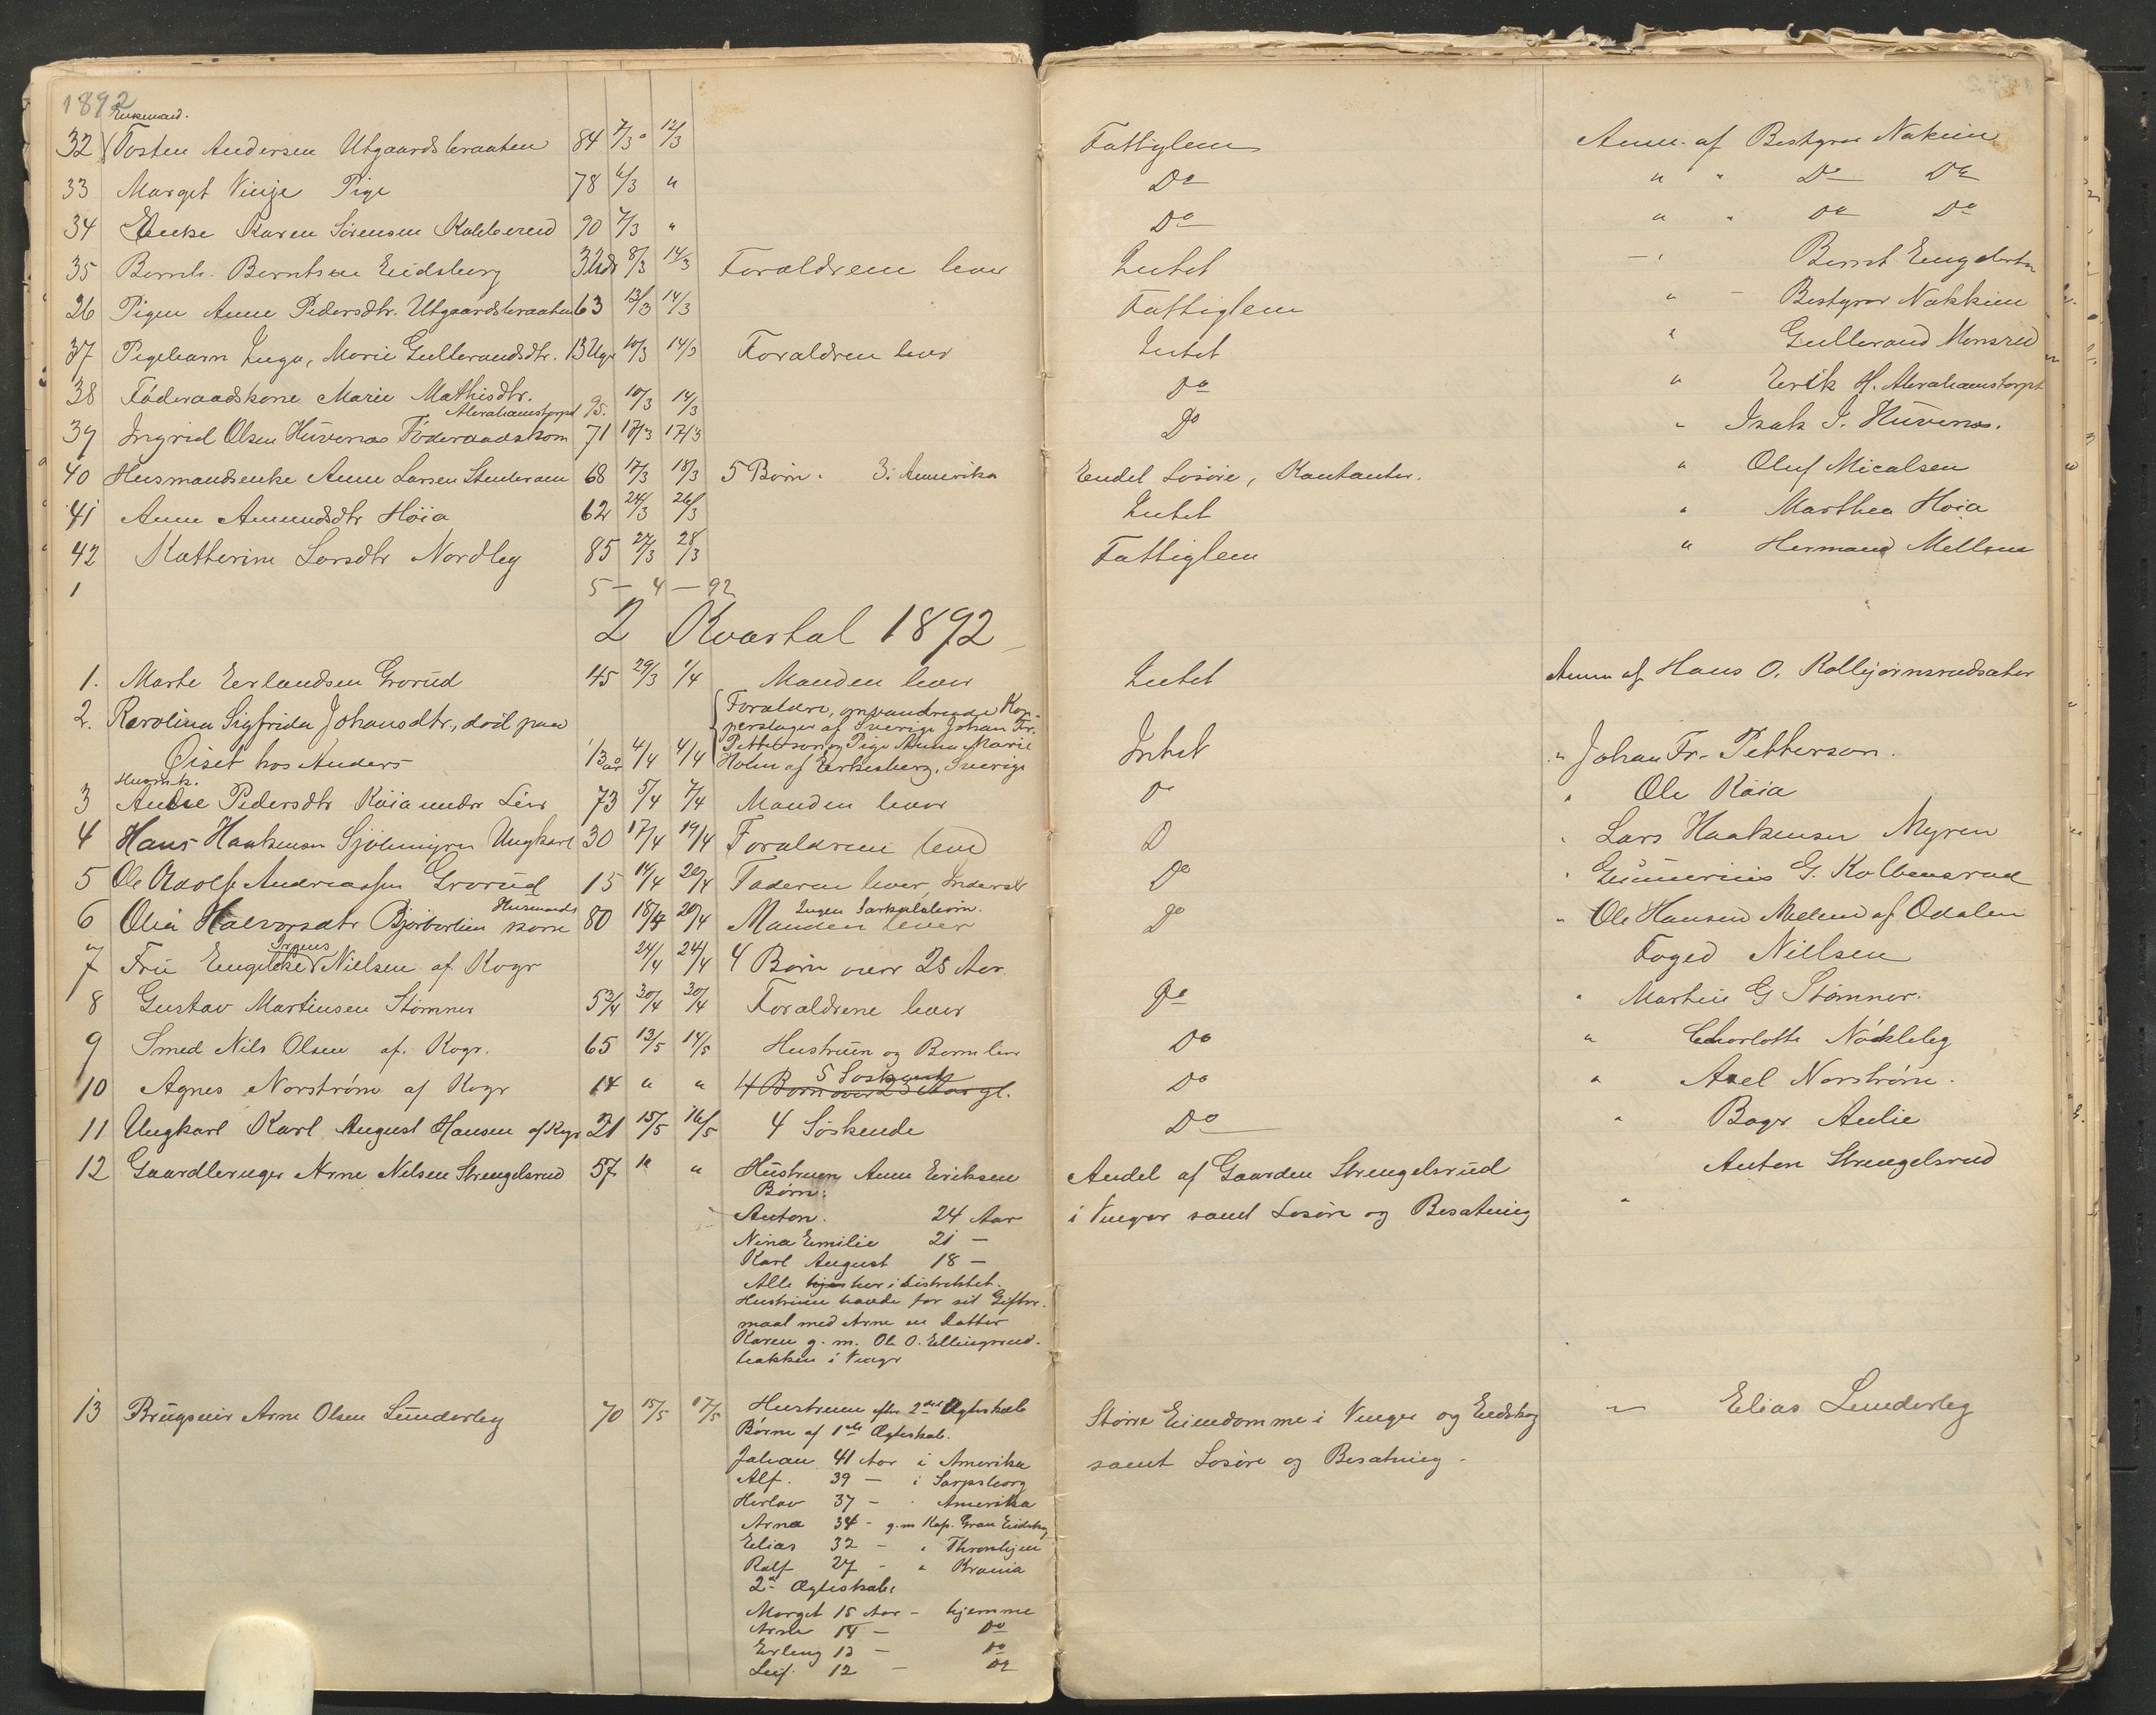 1892
Enkemand.
32 Tosten Andersen Utgaardsbraaten 84 7/3 12/3 Fattiglem Anm. af Bestyrer Nakkim
33 Marget Vinje Pige 78 6/3 " Do " " Do Do
34 Enke Karen Sørensen Kabberud 90 7/3 " Do " " Do Do
35 Bernh. Berntsen Eidsberg 3 Uds 8/3 14/3 Forældrene lever Intet — " Bernt Engebrets
36 Pigen Anne Pedersdtr. Utgaardsbraaten 63 13/3 14/3 Fattiglem " — Bestyrer Nakkim
37 Pigebarn Inga, Marie Gulbrandsdtr. 13 Uger 10/3 14/3 Forældren lever Intet " Gulbrand Monsrud
38 Føderaadskone Marie Mathisdtr. Abrahamstorpet 95. 10/3 14/3 Do " Erik H. Abrahamstorpt
39 Ingrid Olsen Huvenes Føderaadskom 71 17/3 17/3 Do " Isak I. Huvenes.
40 Husmandsenke Anne Larsen Stenbraan 68 17/3 18/3 5 Børn. 3 i Amerika Endel Løsøre, Kontanter. " Oluf Micalsen
41 Anne Amundsdtr Høia 62 24/3 26/3 Intet " Marthea Høia
42 Katherine Larsdtr Nordby 85 27/3 28/3 Fattiglem " Herman Mellem
1 5 — 4 — 92
2 Kvartal 1892
1. Marte Erlandsen Grorud 45 29/3 1/4 Manden lever Intet Anm af Hans O. Kolbjørnsrudsæter
2. Karolina Sigfrida Johansdtr., død paa Forældre, omvandrende Kop-
perslager af Sverige Johan Fr.
Øiset hos Anders 1/3 år 4/4 4/4 Petterson og Pige Anna Marie Intet " Johan Fr. Petterson.
Holm af Eerkesberg, Sverige
Husmk.
3 Andre Pedersdtr Køia under Lier 73 5/4 7/4 Manden lever Do " Ole Køia
4 Hans Haakensen Sjølimyren Ungkarl 30 17/4 19/4 Forældrene leve D " Lars Haakensen Myren
5 Ole Adolf Andreassen Grorud 15 14/4 20/4 Faderen lever, Inderst Do " Gunnerius G. Kolbensrud
6 Olia Halvorsdtr Bjørberlien Husmands kone 80 18/4 20/4 Ingen Særkuldsbørn. Manden lever Do " Ole Hansen Melem af Odalen
7 Fru Engelke Irgens Nielsen af Kogr 24/4 24/4 4 Børn over 25 Aar. Foged Nielsen
8 Gustav Martinsen Stømner 5 3/4 30/4 30/4 Forældrene lever Do " Martin G Stømner.
9 Smed Nils Olsen af. Kogr. 65 13/5 14/5 Hustruen og Børn lever Do " Charlotte Nøkleby
10 Agnes Norstrøm af Kogr 14 " " 5 Søskende 4 Børn over 25 Aar gl. Do " Axel Norstrøm.
11 Ungkarl Karl August Hansen af Kogr 21 15/5 16/5 4 Søskende Do " Bager Aulie
12 Gaardbruger Arne Nilsen Strengelsrud 57 " " Hustruen Anne Eriksen Andel af Gaarden Strengelsrud Anton Strengelsrud
Børn:
Anton. 24 Aar i Vinger samt Løsøre og Besætning "
Nina Emilie 21 —
Karl August 18 —
Alle hjem her i Distriktet.
Hustruen havde før sit Gifter-
maal med Arne en Datter
Karen g. m. Ole O. Ellingsrud-
bakken i Vinger
13 Brugseier Arne Olsen Lunderby 70 15/5 17/5 Hustruen efter 2det Ægteskab Større Eiendomme i Vinger og Eidskog " Elias Lunderby
Børn af 1ste Ægteskab.
Johan 41 Aar i Amerika samt Løsøre og Besætning.
Alf. 39 — i Sarpsborg
Herlav 37 — " Amerika
Arna 34 - g. m Kap. Gran Eidskog
Elias 32 — " Thronhjem
Ralf 27 - " Krania
2det Ægteskab:
Marget 15 Aar - hjemme
Arne 14 — Do
Erling 13 — Do
Leif. 12 — Do